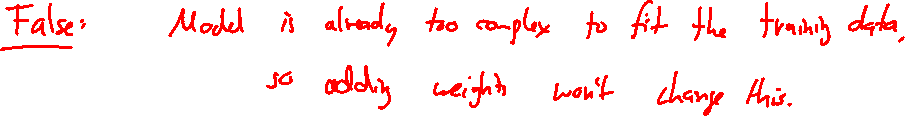 False: Model is already too complex to fit the training data,
so adding weights won't change this.